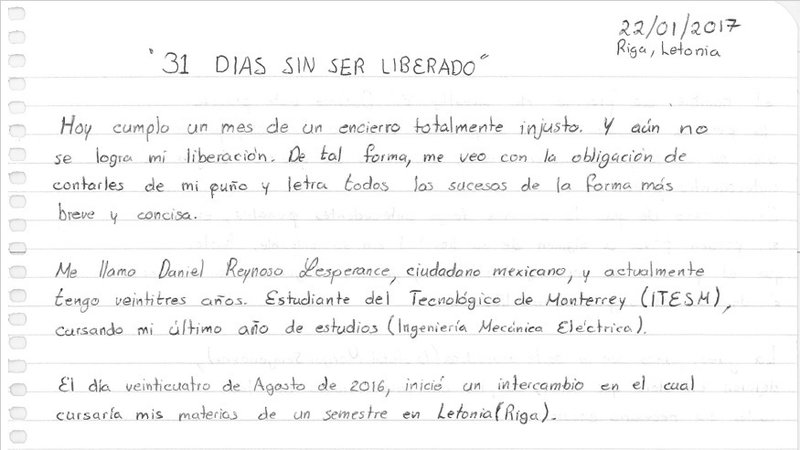 22/01/2017
Riga, Letonia
"31 DIAS SIN SER LIBERADO"
Hoy cumplo un mes de un encierro totalmente injusto. Y aún no
se logra mi liberación. De tal forma, me veo con la obligación de
contarles de mi puño y letra todos los sucesos de la forma más
breve y concisa.
Me llamo Daniel Reynoso Lesperance, ciudadano mexicano, y actualmente
tengo veintitres años. Estudiante del Tecnológico de Monterrey (ITESM),
cursando mi último año de estudios (Ingeniería Mecánica Eléctrica).
El día veinticuatro de Agosto de 2016, inició un intercambio en el cual
cursaría mis materias de un semestre en Letonia (Riga).